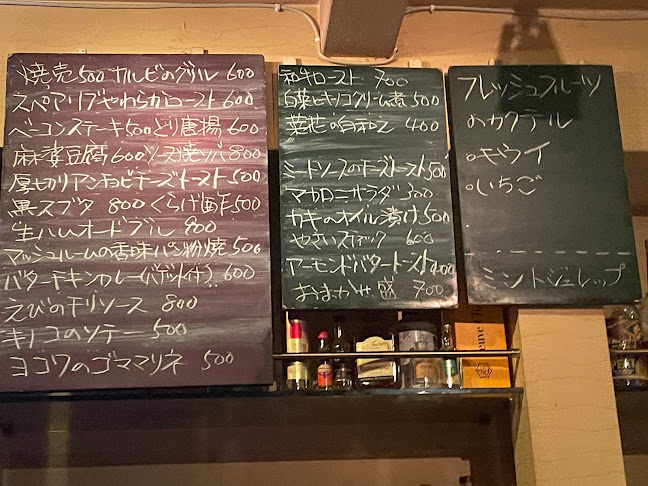 焼売500 カルビのグリル 600
スペアリブやわらかロースト 600
ベーコンステーキ500 とり唐揚 600
麻婆豆腐600 ソース焼ソバ 800
厚切りアンチョビチーズトースト 500
黒スブタ 800 くらげ酢 500
生ハムオードブル 900
マッシュルームの香味パン粉焼 500
バターチキンカレー(バゲット付) 600
えびのチリソース 800
キノコのソテー 500
ヨコワのゴママリネ 500
和牛ロースト 700
白菜とキノコクリーム煮 500
菜花の白和え 400
ミートソースのチーズトースト 500
マカロニサラダ 300
カキのオイル漬け 500
やさいスティック 600
アーモンドバタートースト 400
おまかせ盛 700
フレッシュフルーツ
のカクテル
キウイ
いちご
ミントジュレップ